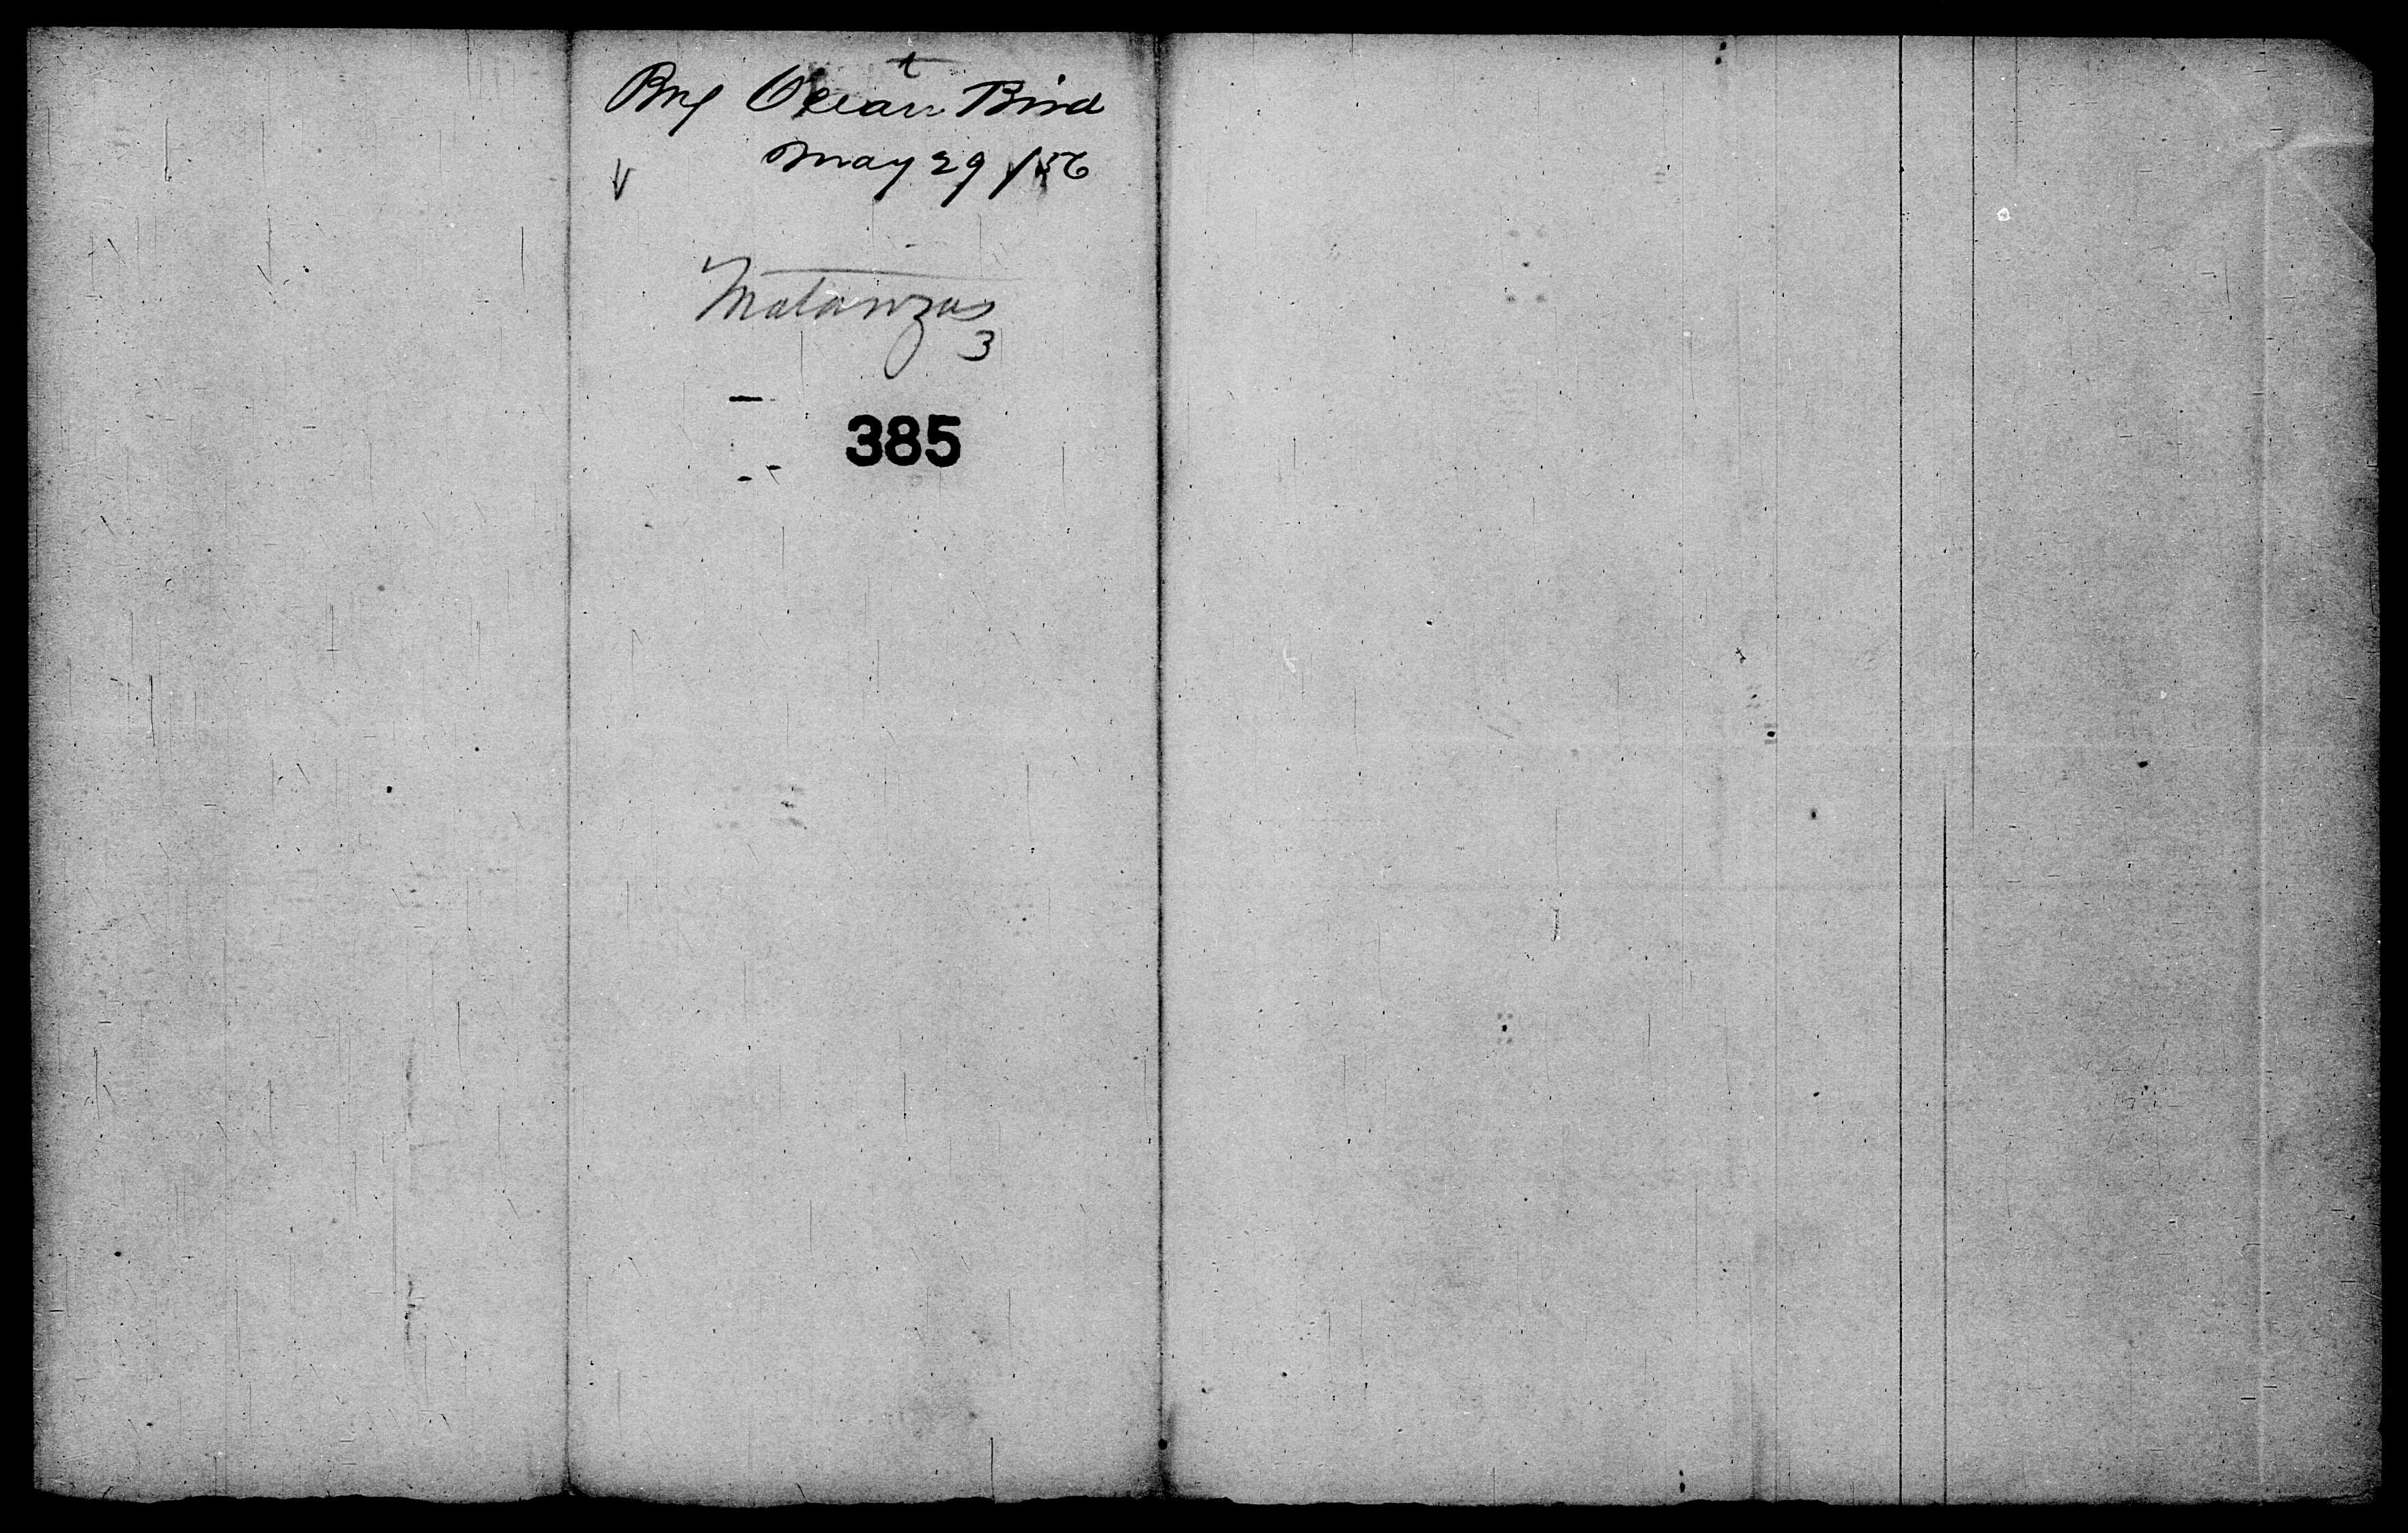 t
Brig Ocean Bird
May 29 /56
Matanzas
3
385